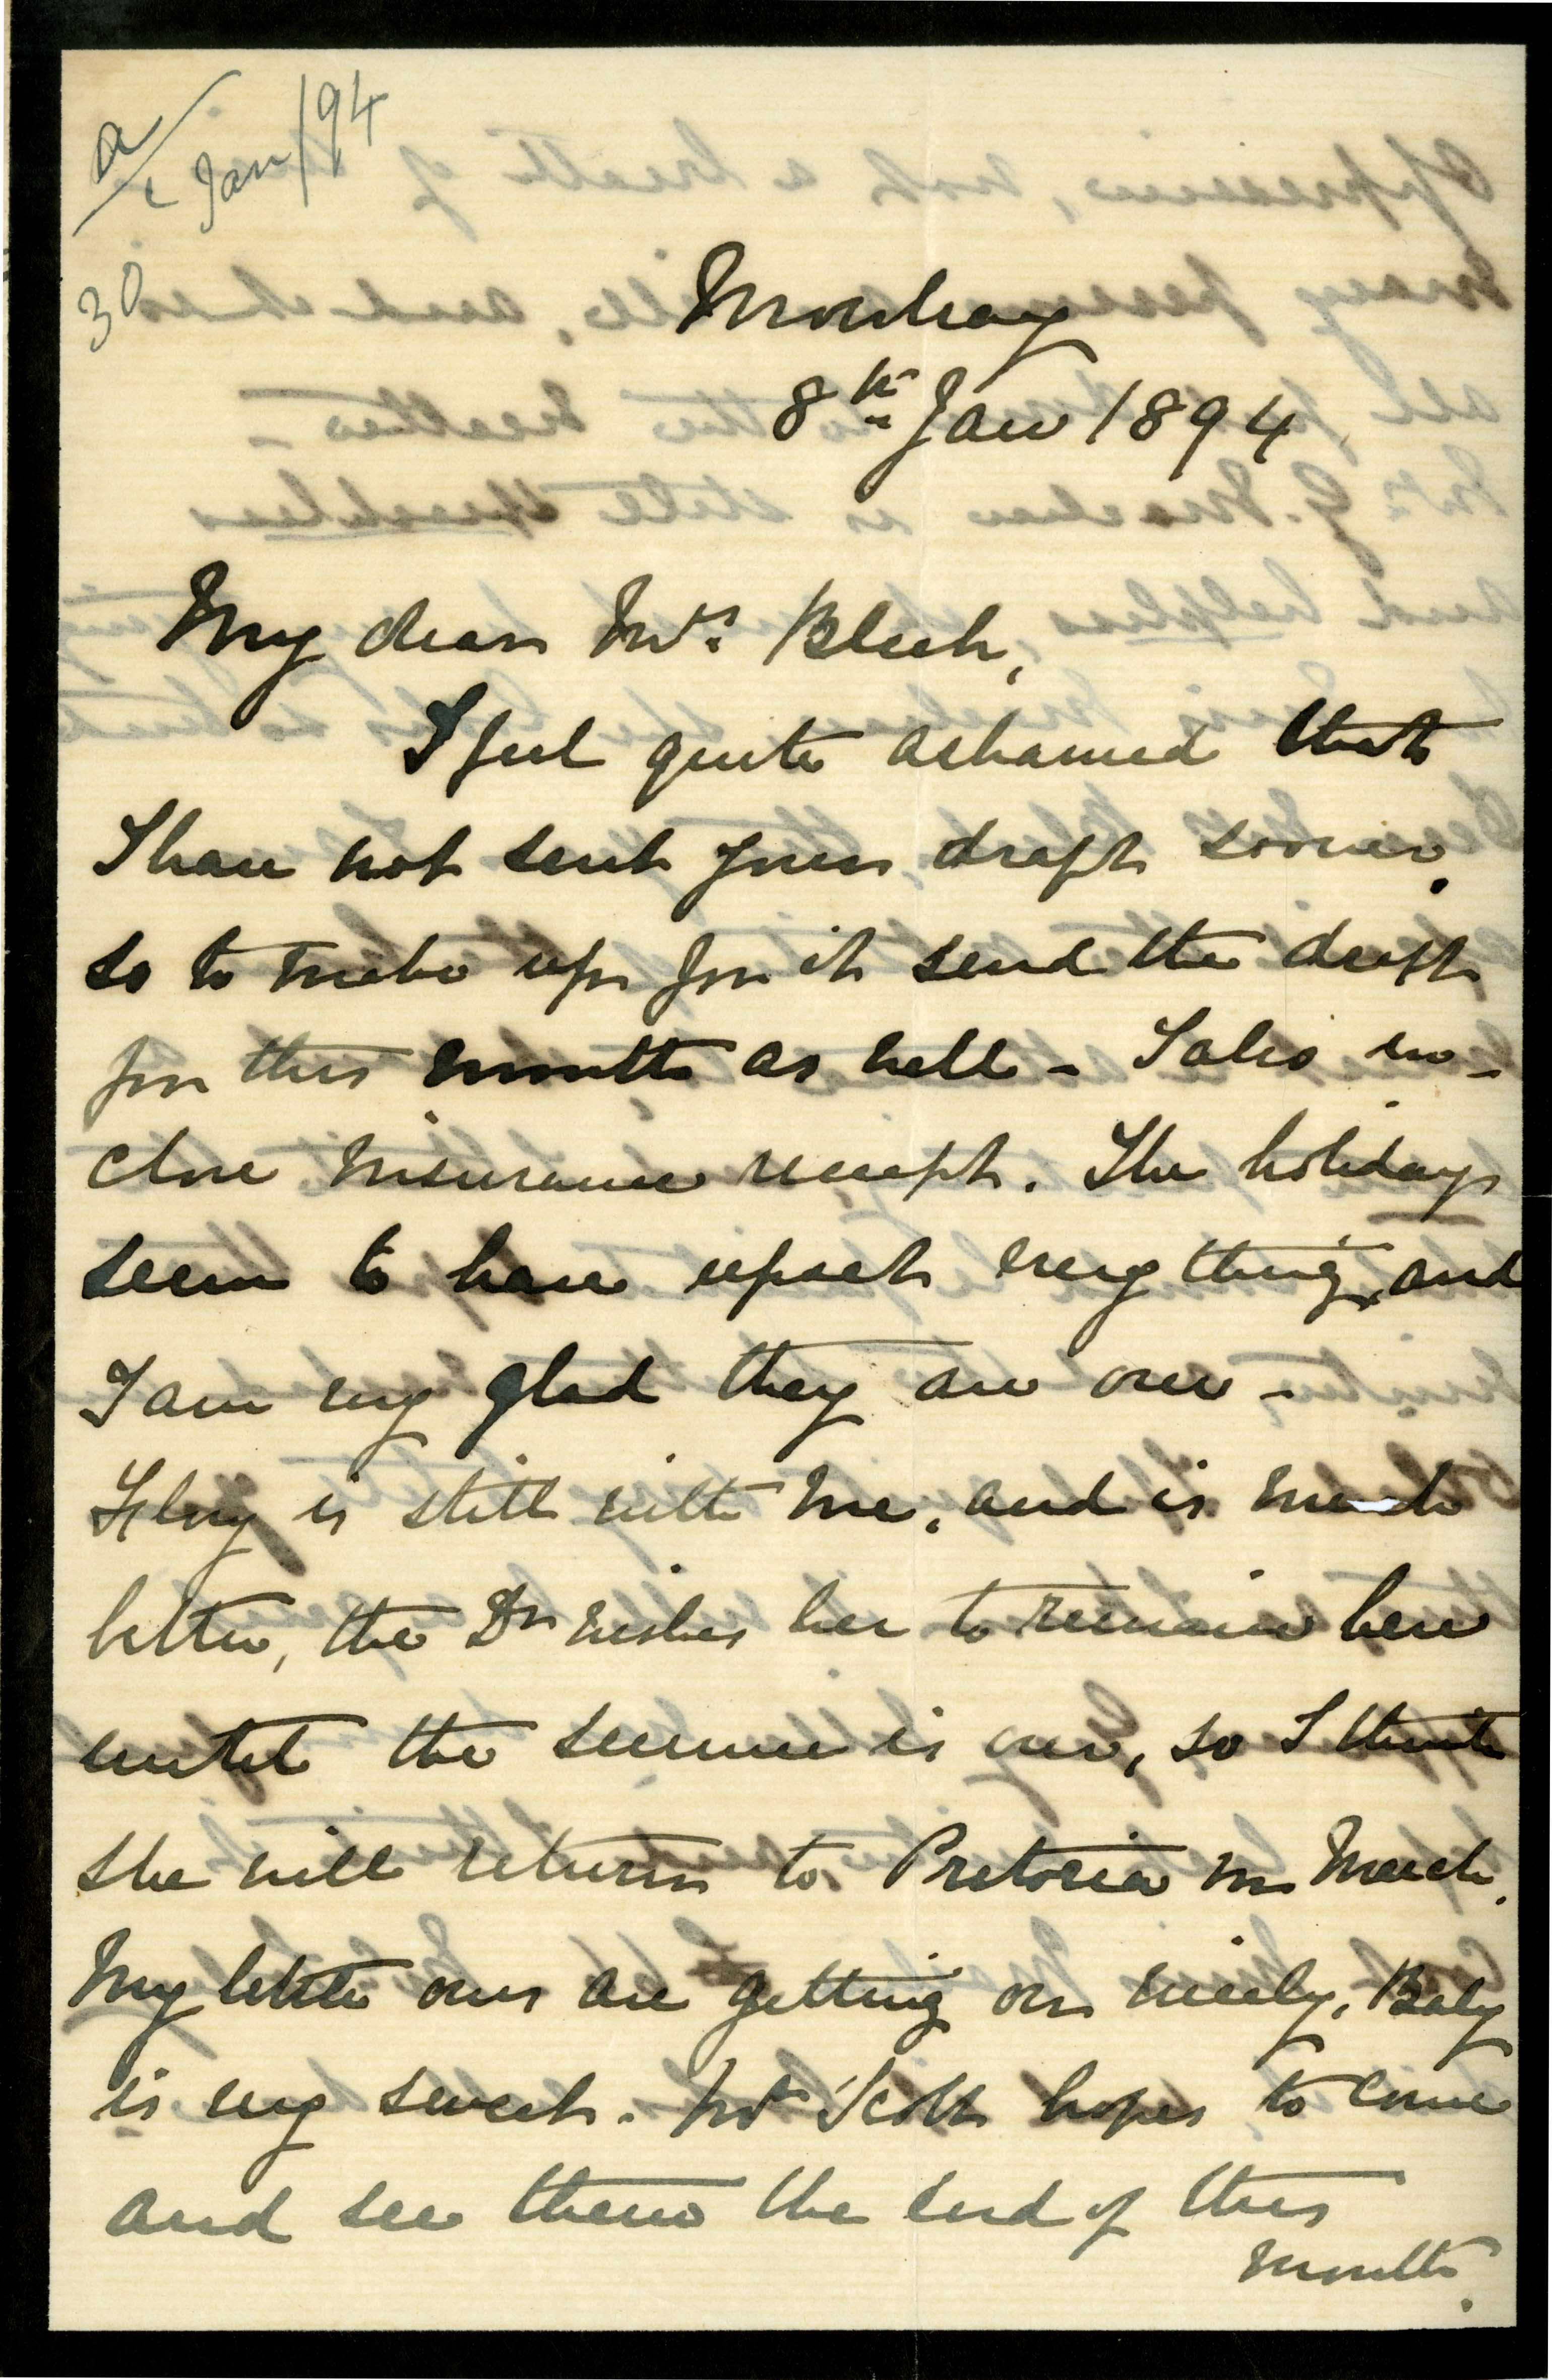 a/c Jan/94
30
Mowbray
8th Jan 1894
My dear Mrs Bleek,
I feel quite ashamed that
I have not sent your draft sooner,
so to make up for it send the draft
for this month as well - I also in-
close insurance receipt. The holidays
seem to have upset everything, and
I am very glad they are over -
is still with me, and is much
better, the Dr wishes her to remain here
until the summer is over, so I think
she will return to Pretoria in March.
My little ones are getting on nicely, Baby
is very sweet. Mr Scott hopes to come
and see them the end of this
month.